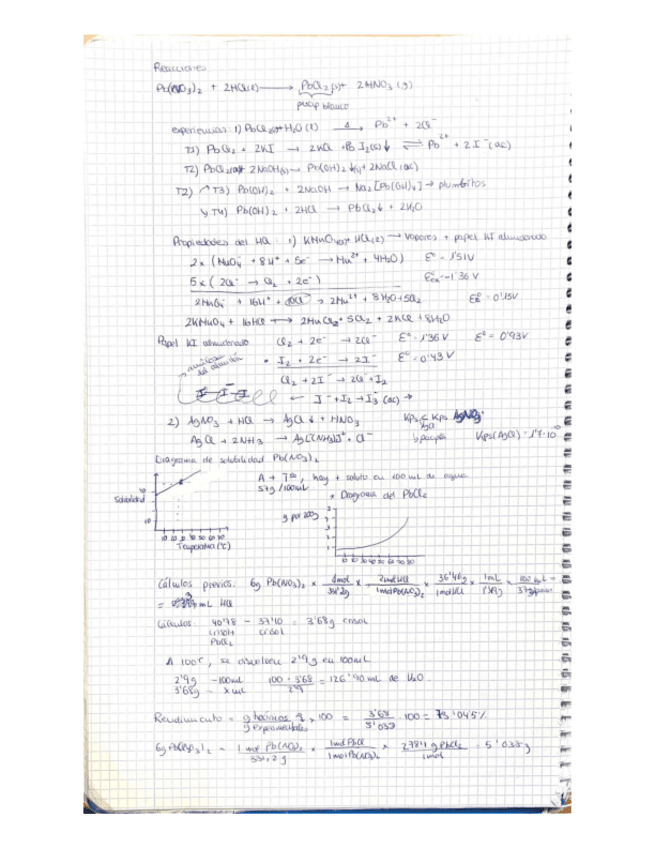 Reacciones
Pb(NO3)2 + 2HCl(l) → PbCl2(s) + 2HNO3 (g)
precip blanco
experiencias: 1) PbCl2(s) + H2O (l) Δ→ Pb2+ + 2Cl-
T1) PbCl2 + 2KI → 2KCl + Pb I2(s)↓ ⇌ Pb2+ + 2I-(ac)
T2) PbCl2(ac) + 2NaOH(s) → Pb(OH)2↓(s) + 2NaCl(ac)
T2) T3) Pb(OH)2 + 2NaOH → Na2[Pb(OH)4] → plumbitos
T4) Pb(OH)2 + 2HCl → PbCl2↓ + 2H2O
Propiedades del HCl: 1) KMnO4(s) + HCl(l) → Vapores + papel KI almidonado
2x (MnO4- + 8H+ + 5e- → Mn2+ + 4H2O) E° = 1'51V
5x (2Cl- → Cl2 + 2e-) -1'36 V
2MnO4- + 16H+ + 10Cl- → 2Mn2+ + 8H2O + 5Cl2 = 0'15V
2KMnO4 + 16HCl → 2MnCl2 + 5Cl2 + 2KCl + 8H2O
Papel KI almidonado Cl2 + 2e- → 2Cl- E° = 1'36 V E° = 0'93V
I2 + 2e- → 2I- E° = 0'43 V
del almidón
Cl2 + 2I- → 2Cl- + I2
← I- + I2 → I3- (ac) →
2) AgNO3 + HCl → AgCl↓ + HNO3 Kps < Kps
AgCl
AgCl + 2NH3 → Ag[(NH3)]+ + Cl- Kps(AgCl) = 1'7·10-10
Diagrama de solubilidad Pb(NO3)2
A + Tª, hay + soluto en 100 mL de agua
57g/100mL
* Diagrama del PbCl2
Solubilidad
g por 200g
10 20 30 40 50 60
Temperatura (°C)
Cálculos previos: 6g Pb(NO3)2 x 1mol x 2mol HCl / 1mol Pb(NO3)2 x 36'46g / 1mol HCl x 1mL
= mL HCl
Cálculos: 40'78 - 37'10 = 3'68g crisol
crisol+ crisol
PbCl2
A 100°C, se disuelven 2'9g en 100mL
2'9g - 100mL 100 · 3'68 / 2'9 = 126'90 mL de H2O
3'68g - x mL
Rendimiento = x 100 = 3'68 / 5'038 · 100 = 73'045%
g experimentales
6g Pb(NO3)2 x 1 mol Pb(NO3)2 / 331,2 g x 1mol PbCl2 / 1mol Pb(NO3)2 x 278'1 g PbCl2 / 1mol = 5'038g